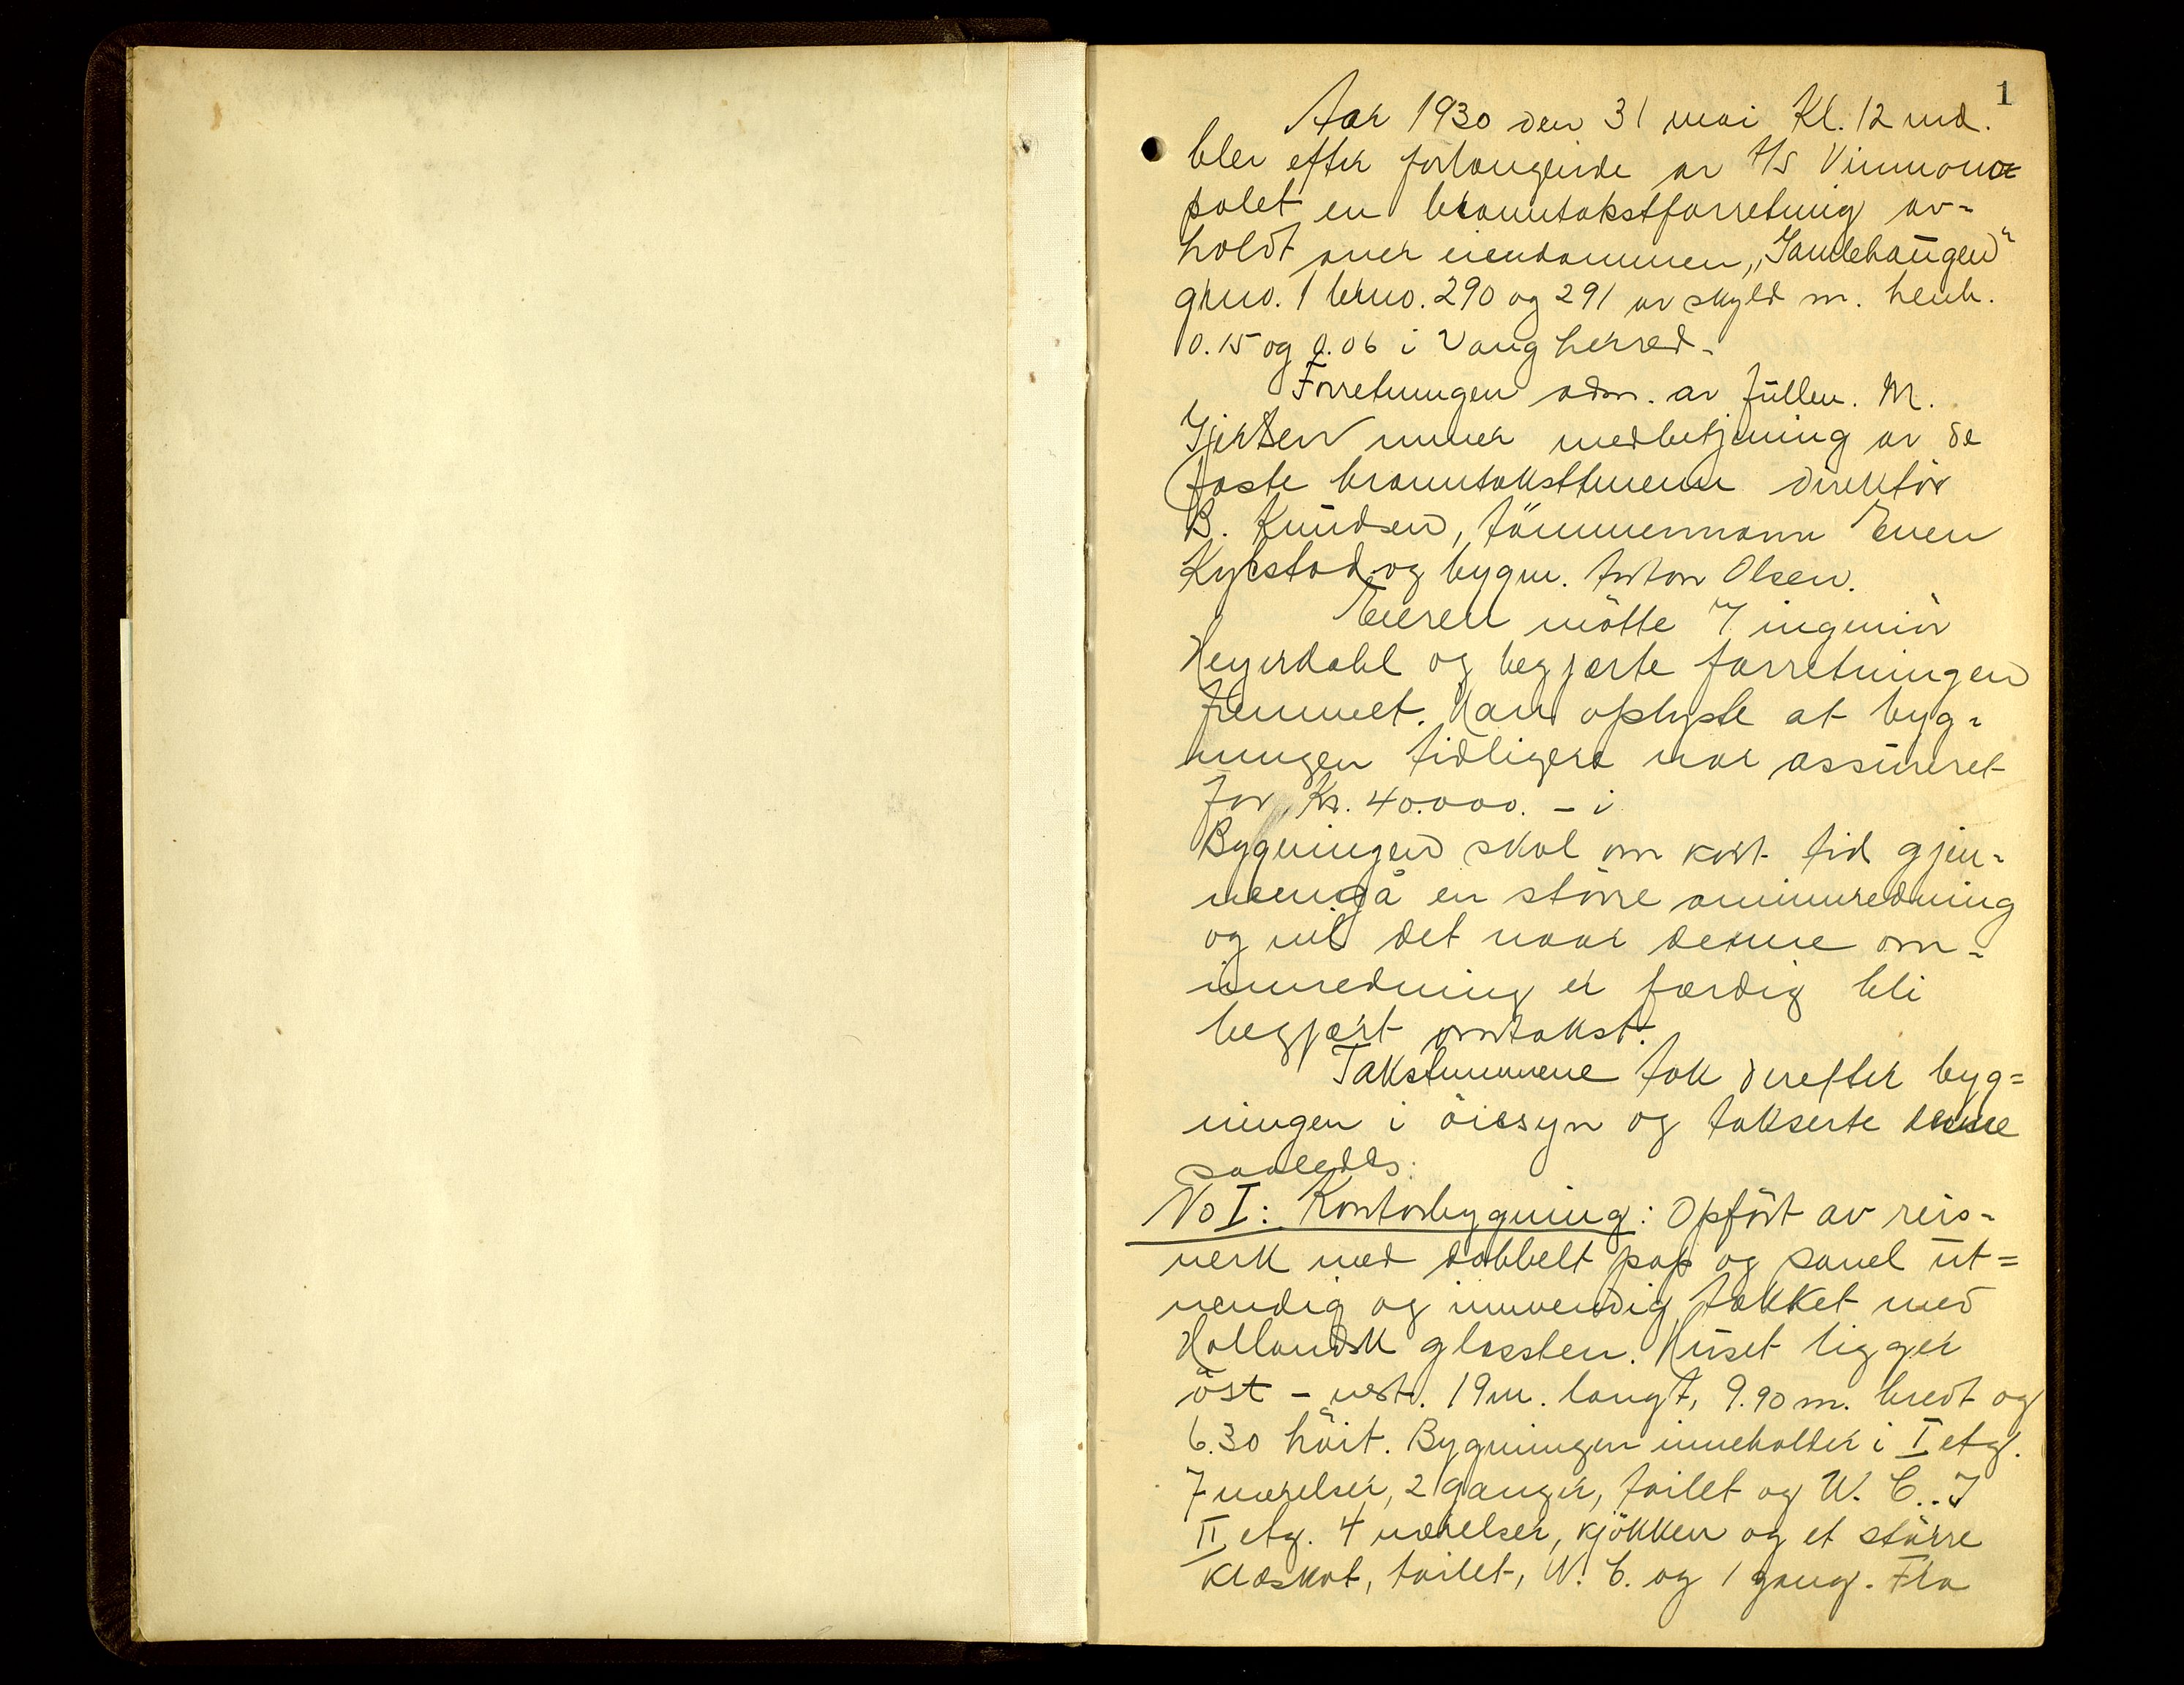 1
Aar 1930 den 31 mai Kl. 12 md.
blev efter forlangende av A/S Vinmono=
polet en branntakstforretning av=
holdt over eiendommen „Sandehaugen"
grno. 1 brno. 290 og 291 av skyld m. henh.
0.15 og 0.06 i Vang herred.
Forretningen adm. av fullm. M.
Gjertsen under medbetjening av de
faste branntakstmenn direktör
B. Knudsen, tömmermann Even
Kykstad og bygm. Anton Olsen.
Eieren mötte v/ ingeniör
Heyerdahl og begjærte forretningen
fremmet. Han oplyste at byg=
ningen tidligere var assureret
for Kr. 40.000. - i
Bygningen skal om kort tid gjen=
nemgå en större ominnredning
og vil det naar denne om=
innredning er færdig bli
begjært omtakst.
Takstmennene tok derefter byg=
ningen i öiesyn og takserte denne
saaledes:
No I: Kontorbygning: Opfört av reis=
verk med dobbelt pap og panel ut=
vendig og innvendig, tekket med
Hollandsk glassten. Huset ligger
öst - vest. 19 m. langt, 9.90 m. bredt og
6.30 höit. Bygningen inneholder i I etg.
7 værelser, 2 ganger, toilet og W. C.. I
II etg. 4 værelser, kjökken og et större
klæskot, toilet, W. C. og 1 gang. Fra